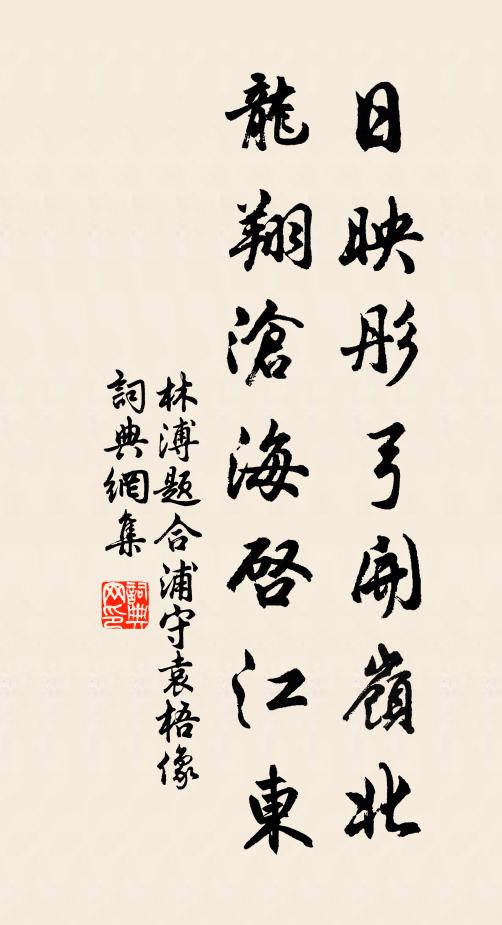 日映彤弓開嶺北
龍翔滄海啓江東
林溥題合浦守袁梧像
詞典網集
詞典網印